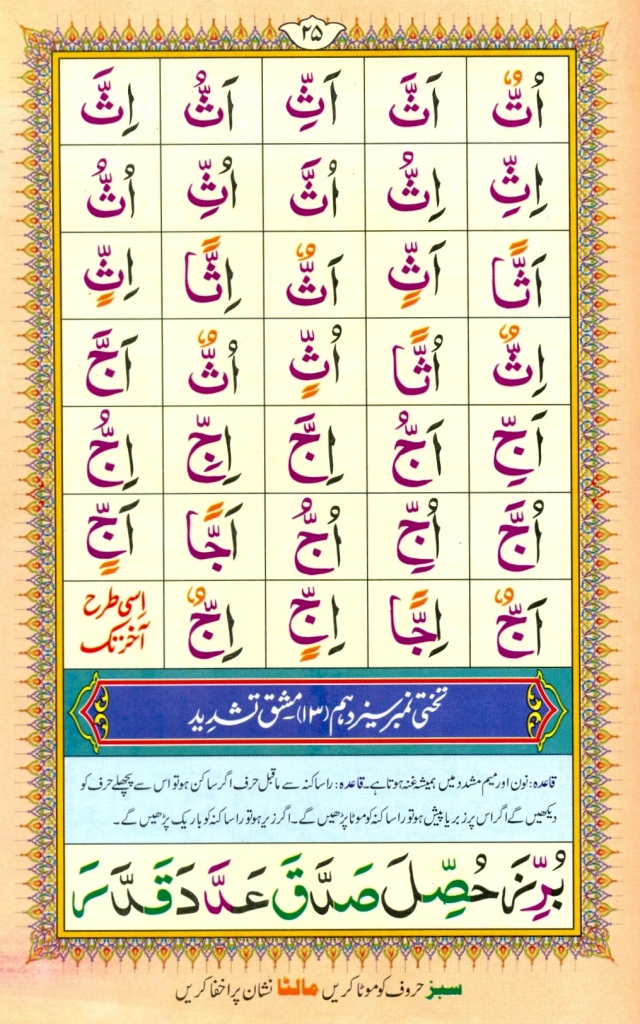 ۲۵
اُتٌّ اَثَّ اَثِّ اَثُّ اِثَّ
اِثِّ اِثُّ اُثَّ اُثِّ اُثُّ
اَثًّا اَثٍّ اَثٌّ اِثًّا اِثٍّ
اِثٌّ اُثًّا اُثٍّ اُثٌّ اَجَّ
اَجِّ اَجُّ اِجَّ اِجِّ اِجُّ
اُجَّ اُجِّ اُجُّ اَجًّا اَجٍّ
اَجٌّ اِجًّا اِجٍّ اِجٌّ اِسی طرح
آخر تک
تختی نمبر سیزدہم (۱۳)۔ مشق تشدید
قاعدہ: نون اور میم مشدد میں ہمیشہ غنہ ہوتا ہے۔ قاعدہ: را ساکنہ سے ماقبل حرف اگر ساکن ہو تو اس سے پچھلے حرف کو
دیکھیں گے اگر اس پر زبر یا پیش ہو تو را ساکنہ کو موٹا پڑھیں گے۔ اگر زیر ہو تو را ساکنہ کو باریک پڑھیں گے۔
بُرِّزَ حُصِّلَ صَدَّقَ عَدَّدَ قَدَّرَ
سبز حروف کو موٹا کریں مالٹا نشان پر اخفا کریں